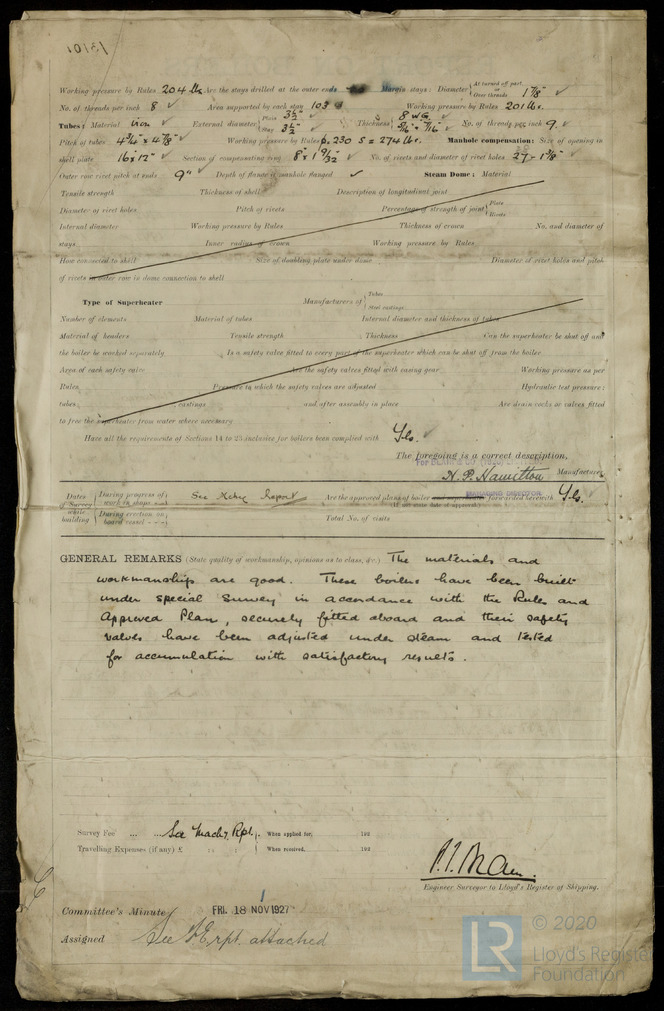 Working pressure by Rules 204 lbs Are the stays drilled at the outer ends Margin stays: Diameter { At turned off part or Over threads 1 7/8"
No. of threads per inch 8 Area supported by each stay 103 Working pressure by Rules 201 lbs.
Tubes: Material iron External diameter { Plain 3½" Stay 3½" Thickness { 8 WG 5/16" & 7/16" No. of threads per inch 9.
Pitch of tubes 4¾" x 4⅞" Working pressure by Rules p. 230 S = 274 lbs. Manhole compensation: Size of opening in
shell plate 16" x 12" Section of compensating ring 8" x 1 9/32" No. of rivets and diameter of rivet holes 27 - 1 3/8"
Outer row rivet pitch at ends 9" Depth of flange if manhole flanged Steam Dome: Material
Tensile strength Thickness of shell Description of longitudinal joint
Diameter of rivet holes Pitch of rivets Percentage of strength of joint { Plate Rivets
Internal diameter Working pressure by Rules Thickness of crown No. and diameter of
stays Inner radius of crown Working pressure by Rules
How connected to shell Size of doubling plate under dome Diameter of rivet holes and pitch
of rivets in outer row in dome connection to shell
Type of Superheater Manufacturers of { Tubes Steel castings
Number of elements Material of tubes Internal diameter and thickness of tubes
Material of headers Tensile strength Thickness Can the superheater be shut off and
the boiler be worked separately Is a safety valve fitted to every part of the superheater which can be shut off from the boiler
Area of each safety valve Are the safety valves fitted with easing gear Working pressure as per
Rules Pressure to which the safety valves are adjusted Hydraulic test pressure:
tubes castings and after assembly in place Are drain cocks or valves fitted
to free the superheater from water where necessary
Have all the requirements of Sections 14 to 23 inclusive for boilers been complied with Yes.
The foregoing is a correct description,
H. P. Hamilton Manufacturer.
MANAGING DIRECTOR.
Dates of Survey while building { During progress of work in shops - - See Mchy Report Are the approved plans of boiler and superheater forwarded herewith Yes.
(If not state date of approval.)
During erection on board vessel - - - Total No. of visits
GENERAL REMARKS (State quality of workmanship, opinions as to class, &c.) The materials and
workmanship are good. These boilers have been built
under special survey in accordance with the Rules and
Approved Plan, securely fitted aboard and their safety
valves have been adjusted under steam and tested
for accumulation with satisfactory results.
Survey Fee ... ... See Machy Rpt. When applied for, 192
Travelling Expenses (if any) £ : : When received, 192
Engineer Surveyor to Lloyd's Register of Shipping.
Committee's Minute FRI. 18 NOV 1927
Assigned See F.E. rpt. attached
© 2020
LR Lloyd's Register
Foundation